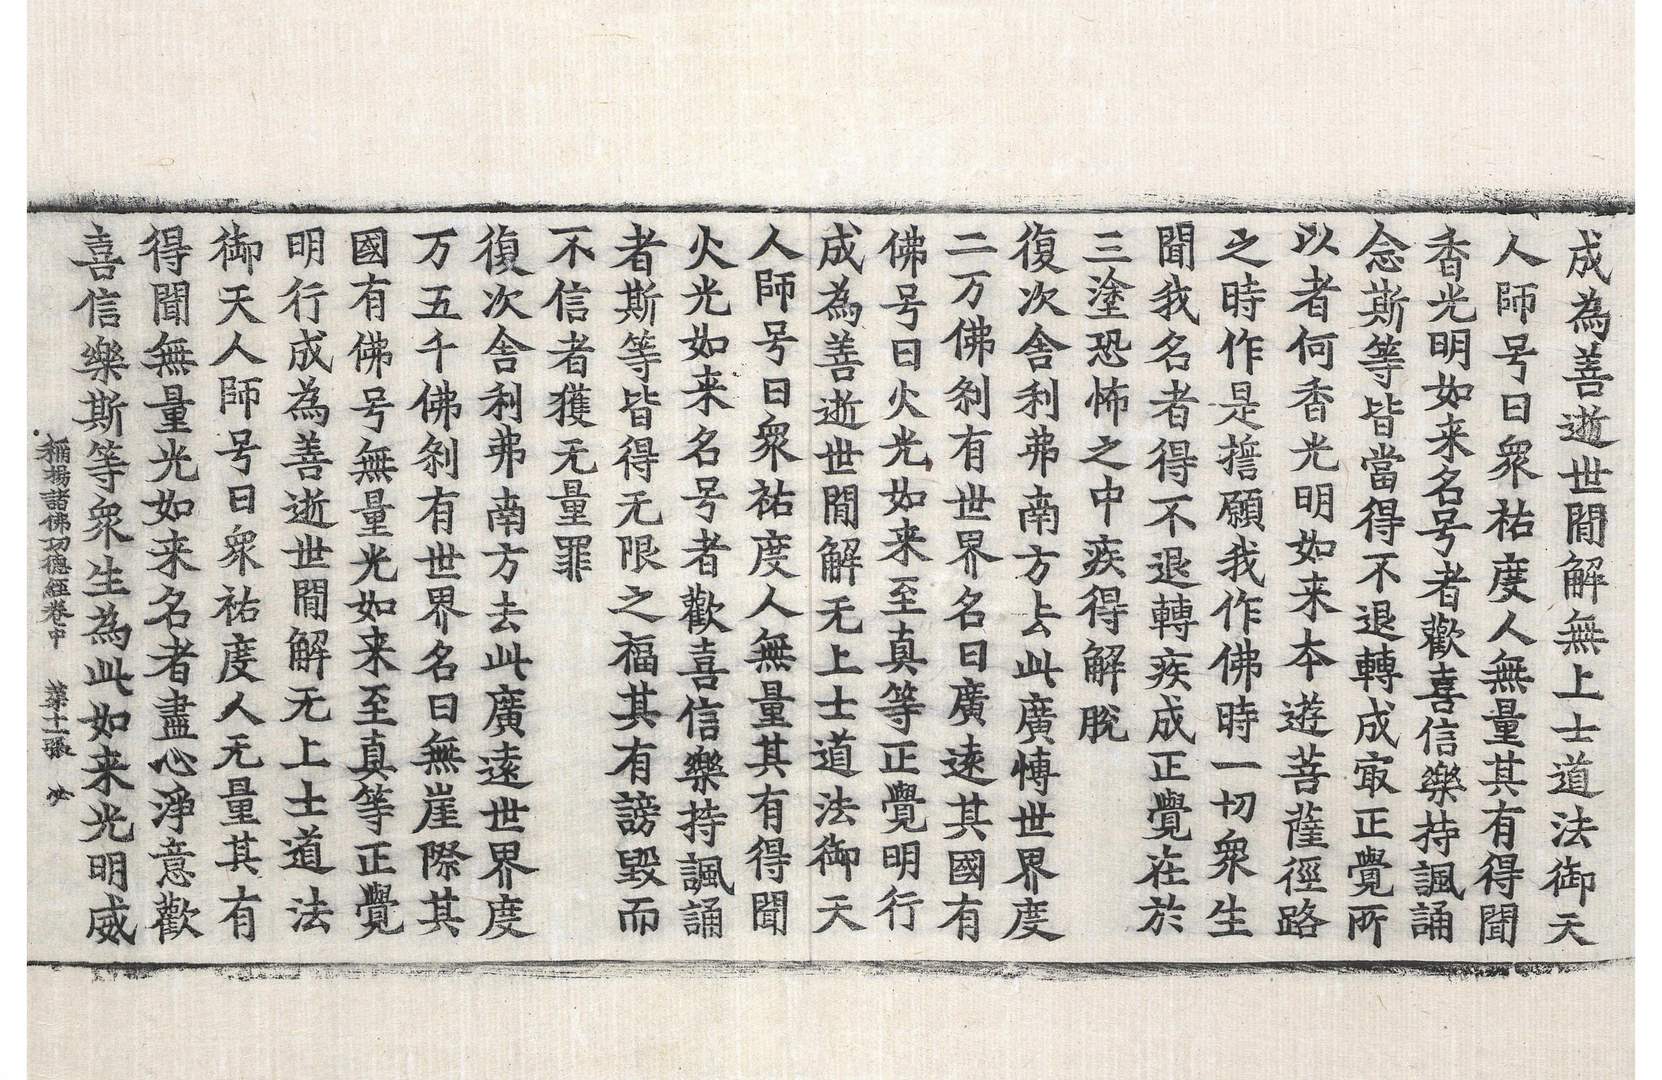 成為善逝世間解無上士道法御天
人師号曰衆祐度人無量其有得聞
香光明如来名号者歡喜信樂持諷誦
念斯等皆當得不退轉成㝡正覺所
以者何香光明如来夲遊菩薩徑路
之時作是誓願我作佛時一切衆生
聞我名者得不退轉疾成正覺在於
三塗恐怖之中疾得解脫
復次舍利弗南方去此廣博世界度
二万佛刹有世界名曰廣遠其國有
佛号曰火光如来至真等正覺明行
成為善逝世間解无上士道法御天
人師号曰衆祐度人無量其有得聞
火光如来名号者歡喜信樂持諷誦
者斯等皆得无限之福其有謗毀而
不信者獲无量罪
復次舍利弗南方去此廣遠世界度
万五千佛刹有世界名曰無崖際其
國有佛号無量光如来至真等正覺
明行成為善逝世間解无上士道法
御天人師号曰衆祐度人无量其有
得聞無量光如来名者盡心淨意歡
喜信樂斯等衆生為此如来光明威
稱揚諸佛功德経卷中 苐十二張